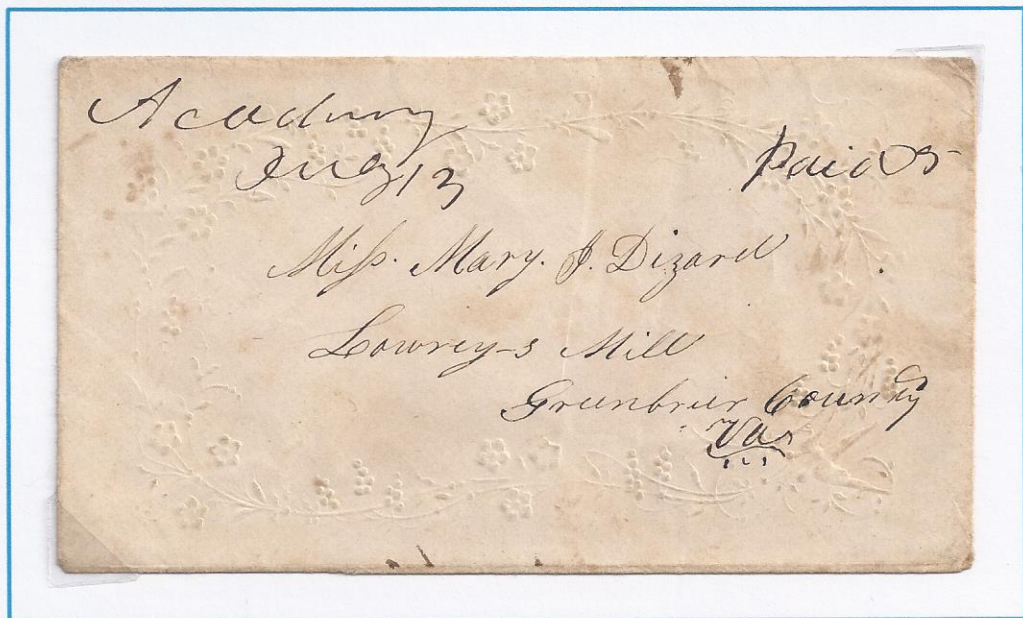 Academy
July 13
Paid 5
Miss. Mary. J. Dizard
Lowrey-s Mill
Greenbrier County
Va